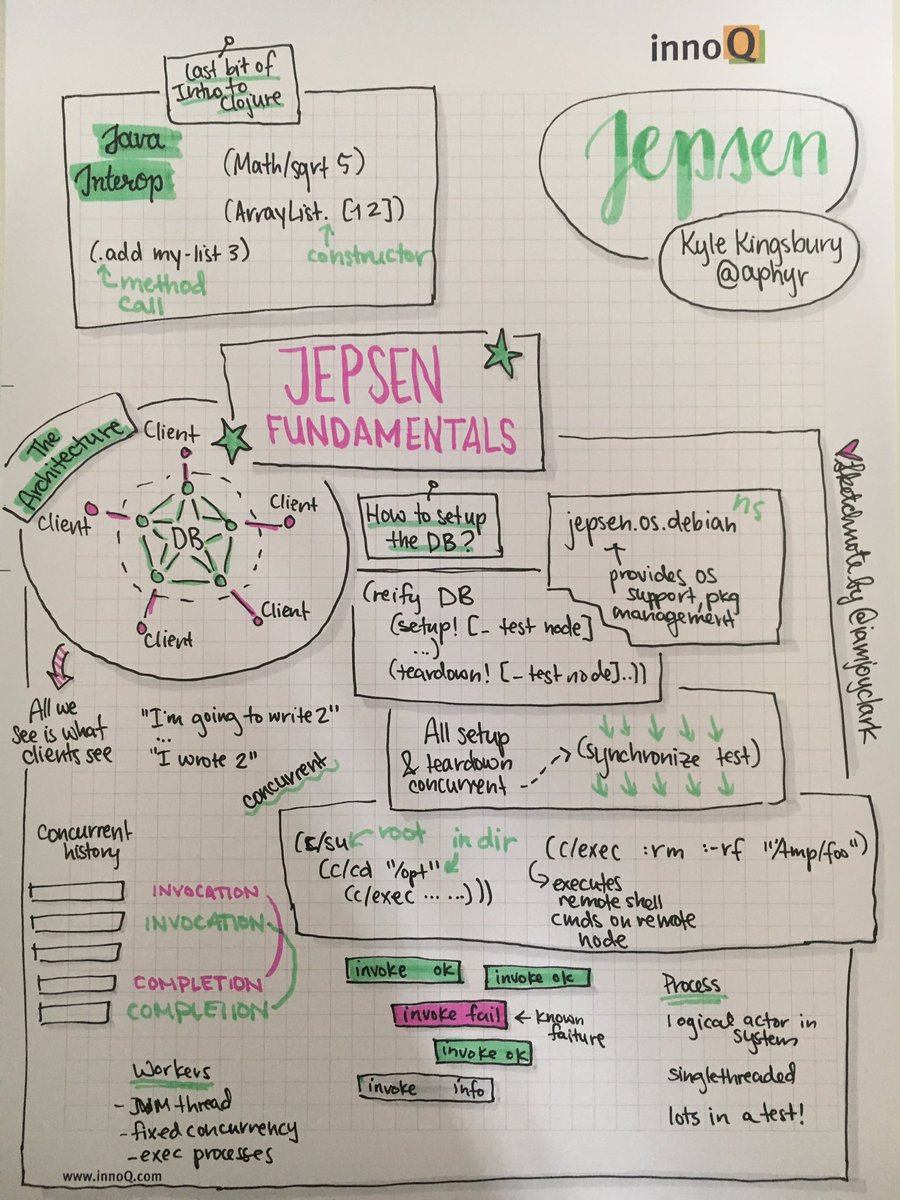 innoQ
Last bit of
Intro to
Clojure
Java
Interop
(Math/sqrt 5)
(ArrayList. [1 2])
constructor
(.add my-list 3)
method
call
Jepsen
Kyle Kingsbury
@aphyr
JEPSEN
FUNDAMENTALS
The
Architecture
Client
Client
Client
Client
Client
DB
How to setup
the DB?
ns
jepsen.os.debian
provides OS
support, pkg
management
(reify DB
(setup! [_ test node]
...)
(teardown! [_ test node]..))
sketchnote by @iamjoyclark
All we
see is what
clients see
"I'm going to write 2"
...
"I wrote 2"
concurrent
All setup
& teardown
concurrent
(synchronize test)
(c/su
root
in dir
(c/cd "/opt"
(c/exec ... ...)))
(c/exec :rm :-rf "/tmp/foo")
executes
remote shell
cmds on remote
node
Concurrent
history
INVOCATION
INVOCATION
COMPLETION
COMPLETION
invoke ok
invoke ok
invoke fail
known
failure
invoke ok
invoke info
Process
logical actor in
system
singlethreaded
lots in a test!
Workers
- JVM thread
- fixed concurrency
- exec processes
www.innoQ.com